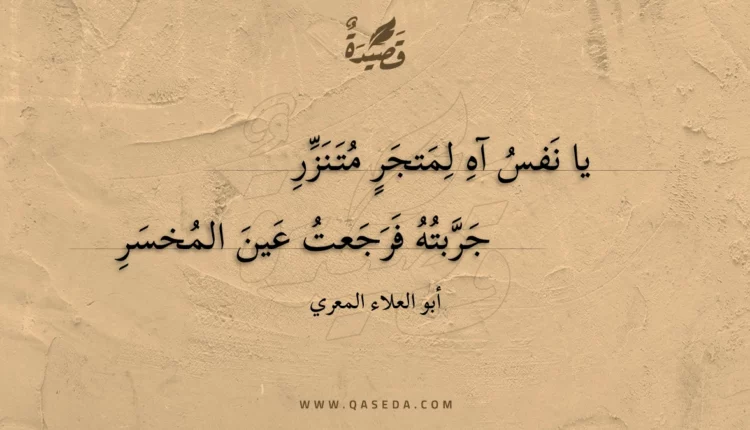 قَصِيْدَةٌ
يا نَفسُ آهِ لِمَتجَرٍ مُتَنَزِّرِ
جَرَّبتُهُ فَرَجَعتُ عَينَ المُخسَرِ
أبو العلاء المعري
WWW.QASEDA.COM